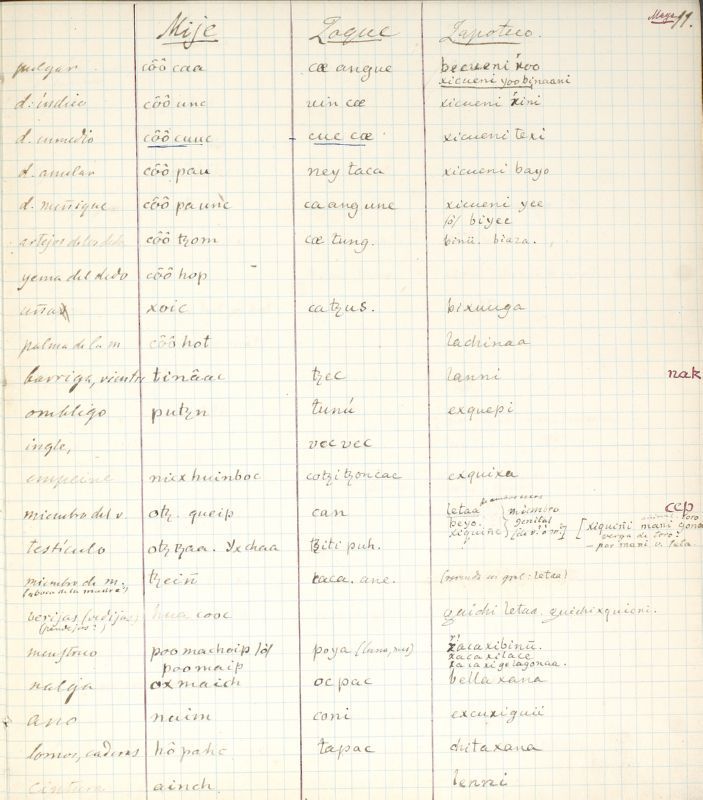 Maya 11.
Mije Zoque Zapoteco.
pulgar côô caa cæ angue becueni xoo
xicueni yoo binaani
d. índico côô unc uin cæ xicueni xini
d. enmedio côô cuuc cuc cæ xicueni texi
d. anular côô pau ney taca xicueni bayo
d. meñique côô paunc ca ang une xicueni yee
/ó/ biyee
artejos de los côô tzom cæ tung. binü. biaza.
yema del dedo côô hop
uña xoic catzus. bixuuga
palma de la m côô hot lachinaa
barriga, vientre tinâac tzec lanni nak
ombligo putzn tunú exquepi
ingle, vec vec
empeine niexhuinboc cotzitzoncac exquixa
miembro del v. otz. queip can letaa miembro cep
peyo. genital
xiquiñe (de v. ó m) [xiqueñi mani gona
verga de toro:
por mani v. lata
testículo otztzaa. Yxchaa tziti puh.
miembro de m. tzeiñ taca. ane.
(aboca de la madre)
verijas (vedijas) hua cooc guichi letaa. guichixquieni.
(pendejos?)
menstruo poo machoip /ó/ poya (luna, mes) xacaxibinü.
poo maip xacaxilace
xacaxigelagonaa.
nalga ox maich ocpac bellaxana
ano naim coni excuxiguii
lomos, caderas hôpahc tapac chitaxana
cintura ainch lenni